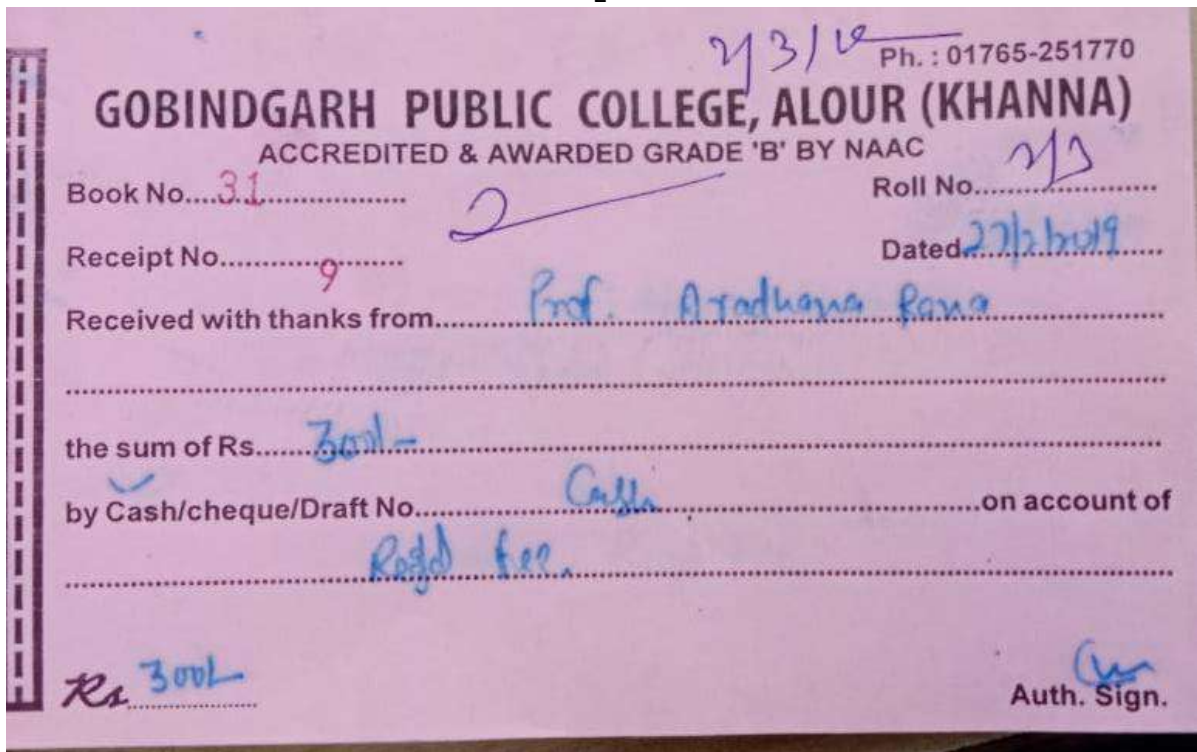 Ph. : 01765-251770
GOBINDGARH PUBLIC COLLEGE, ALOUR (KHANNA)
ACCREDITED & AWARDED GRADE 'B' BY NAAC
Book No....31................ Roll No.....................
Receipt No............9....... Dated..27/2/2019......
Received with thanks from..........Prof. Aradhana Rana................
the sum of Rs......300/-......................................
by Cash/cheque/Draft No...............Cash...............................on account of
Regd fee.
Rs 300/-
Auth. Sign.